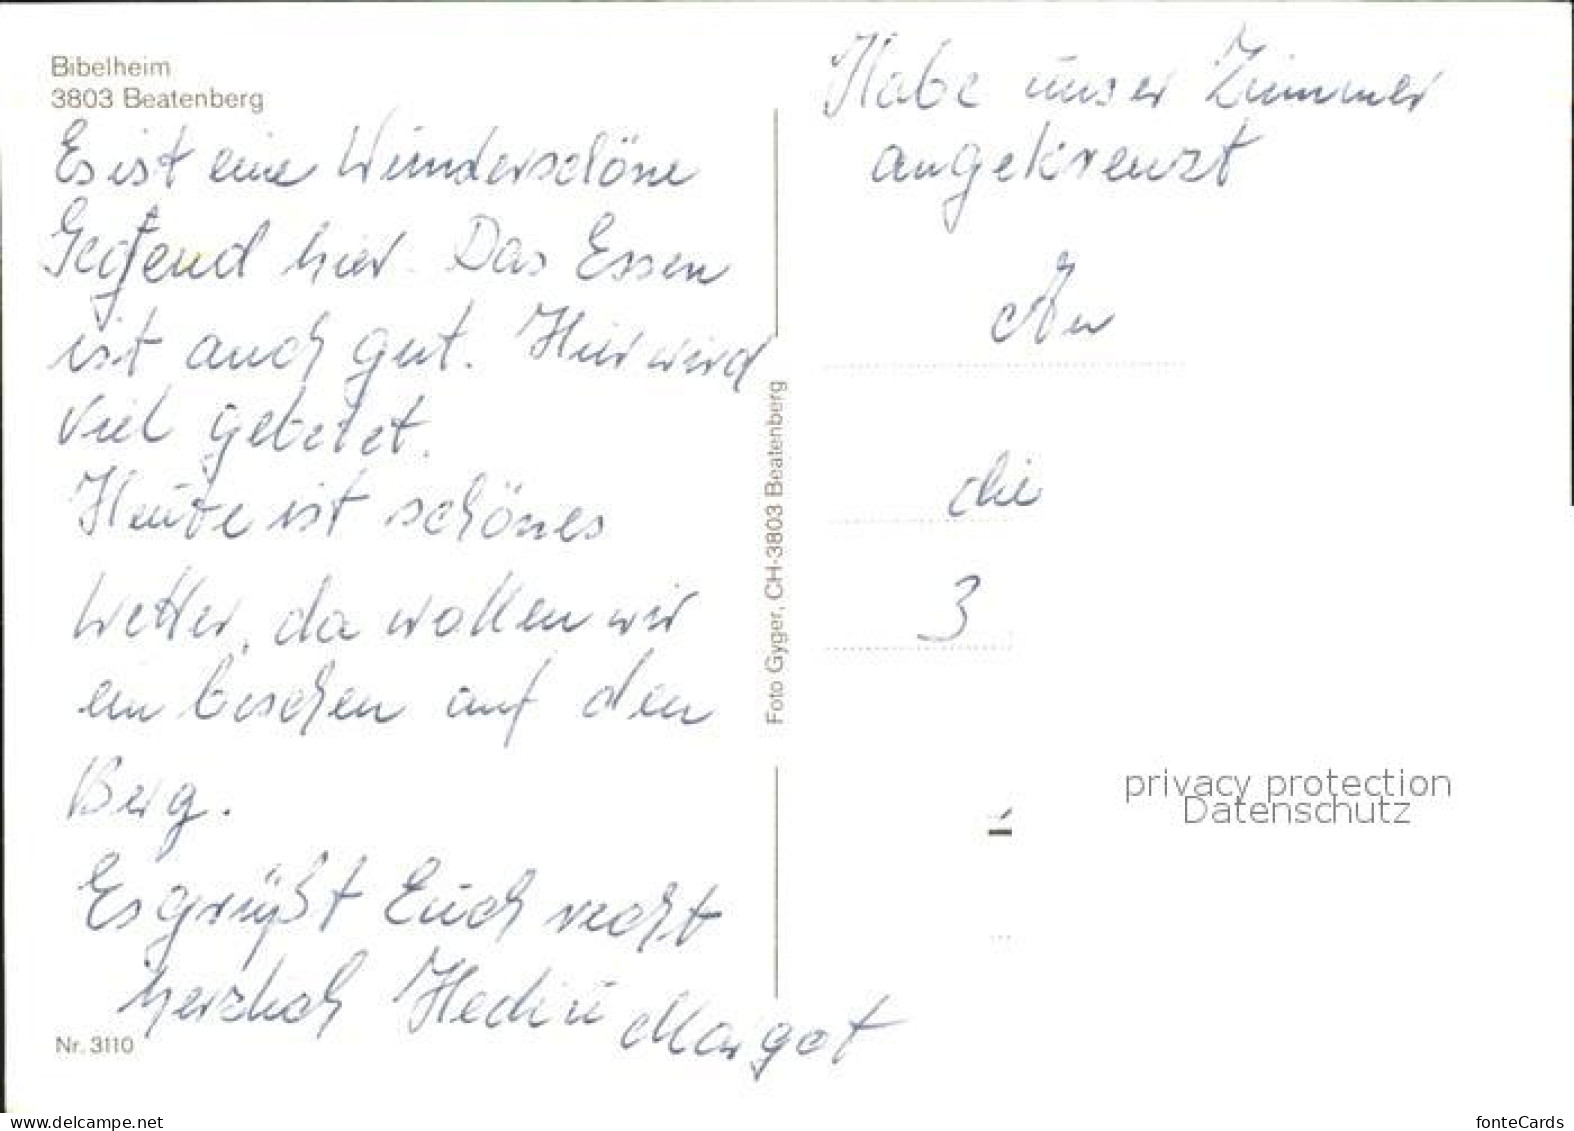 Bibelheim
3803 Beatenberg
Es ist eine Wunderschöne
Gegend hier. Das Essen
ist auch gut. Hier wird
viel gebetet.
Heute ist schönes
Wetter, da wollen wir
ein bischen auf den
Berg.
Es grüßt Euch recht
herzlich Hedi u Margot
Nr. 3110
Foto Gyger, CH-3803 Beatenberg
Habe unser Zimmer
angekreuzt
An
die
3
privacy protection
Datenschutz
www.delcampe.net
fonteCards